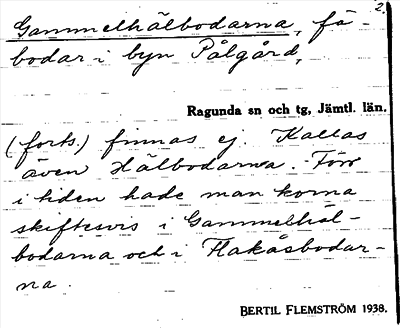 2.
Gammelhälbodarna, fä-
bodar i byn Pålgård,
Ragunda sn och tg, Jämtl. län.
(forts.) finnas ej. Kallas
även Hälbodarna. - Förr
i tiden hade man korna
skiftesvis i Gammelhäl-
bodarna och i Flakåsbodar-
na.
BERTIL FLEMSTRÖM 1938.